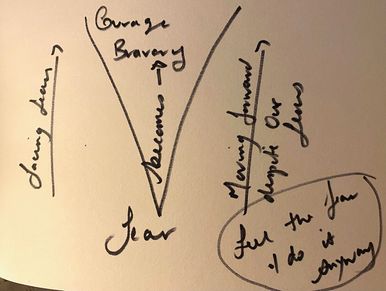 Courage
Bravery
becomes
Fear
Facing fears
Moving forward
despite our
fears
Feel the fear
& do it
anyway